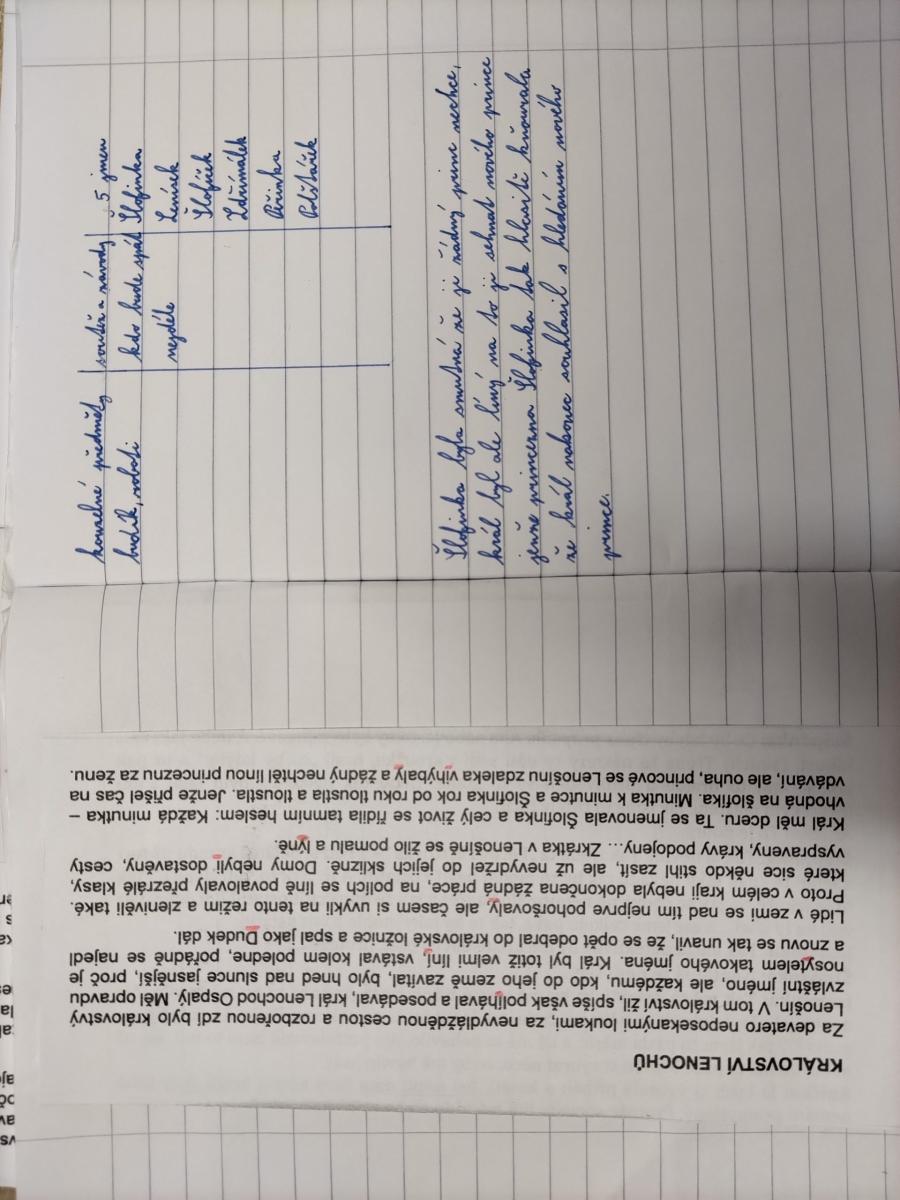 KRÁLOVSTVÍ LENOCHŮ
Za devatero neposekanými loukami, za nevydlážděnou cestou a rozbořenou zdí bylo království
Lenošín. V tom království žil, spíše však polijhával a posedával, král Lenochod Ospalý. Měl opravdu
zvláštní jméno, ale každému, kdo do jeho země zavítal, bylo hned nad slunce jasnější, proč je
nosytelem takového jména. Král byl totiž velmi líní, vstával kolem poledne, pořádně se najedl
a znovu se tak unavil, že se opět odebral do královské ložnice a spal jako Dudek dál.
Lidé v zemi se nad tím nejprve pohoršovaly, ale časem si uvykli na tento režim a zlenivěli také.
Proto v celém kraji nebyla dokončena žádná práce, na polích se líně povalovaly přezrálé klasy,
které sice někdo stihl zasít, ale už nevydržel do jejich sklizně. Domy nebyli dostavěny, cesty
vyspraveny, krávy podojeny... Zkrátka v Lenošíně se žilo pomalu a lýně.
Král měl dceru. Ta se jmenovala Šlofinka a celý život se řídila tamním heslem: Každá minutka –
vhodná na šlofíka. Minutka k minutce a Šlofinka rok od roku tloustla a tloustla. Jenže přišel čas na
vdávání, ale ouha, princové se Lenošínu zdaleka vihýbaly a žádný nechtěl línou princeznu za ženu.
kouzelné předměty soutěž a závody 5 jmen
budík, roboti kdo bude spát Šlofinka
nejdéle Lenísek
Šlofíček
Zdřímálek
Peřinka
Polštářek
Šlofinka byla smutná že ji žádný princ nechce,
král byl ale líný na to ji sehnat nového prince
jenže princezna Šlofinka tak hlasitě kňourala
že král nakonec souhlasil s hledáním nového
prince.